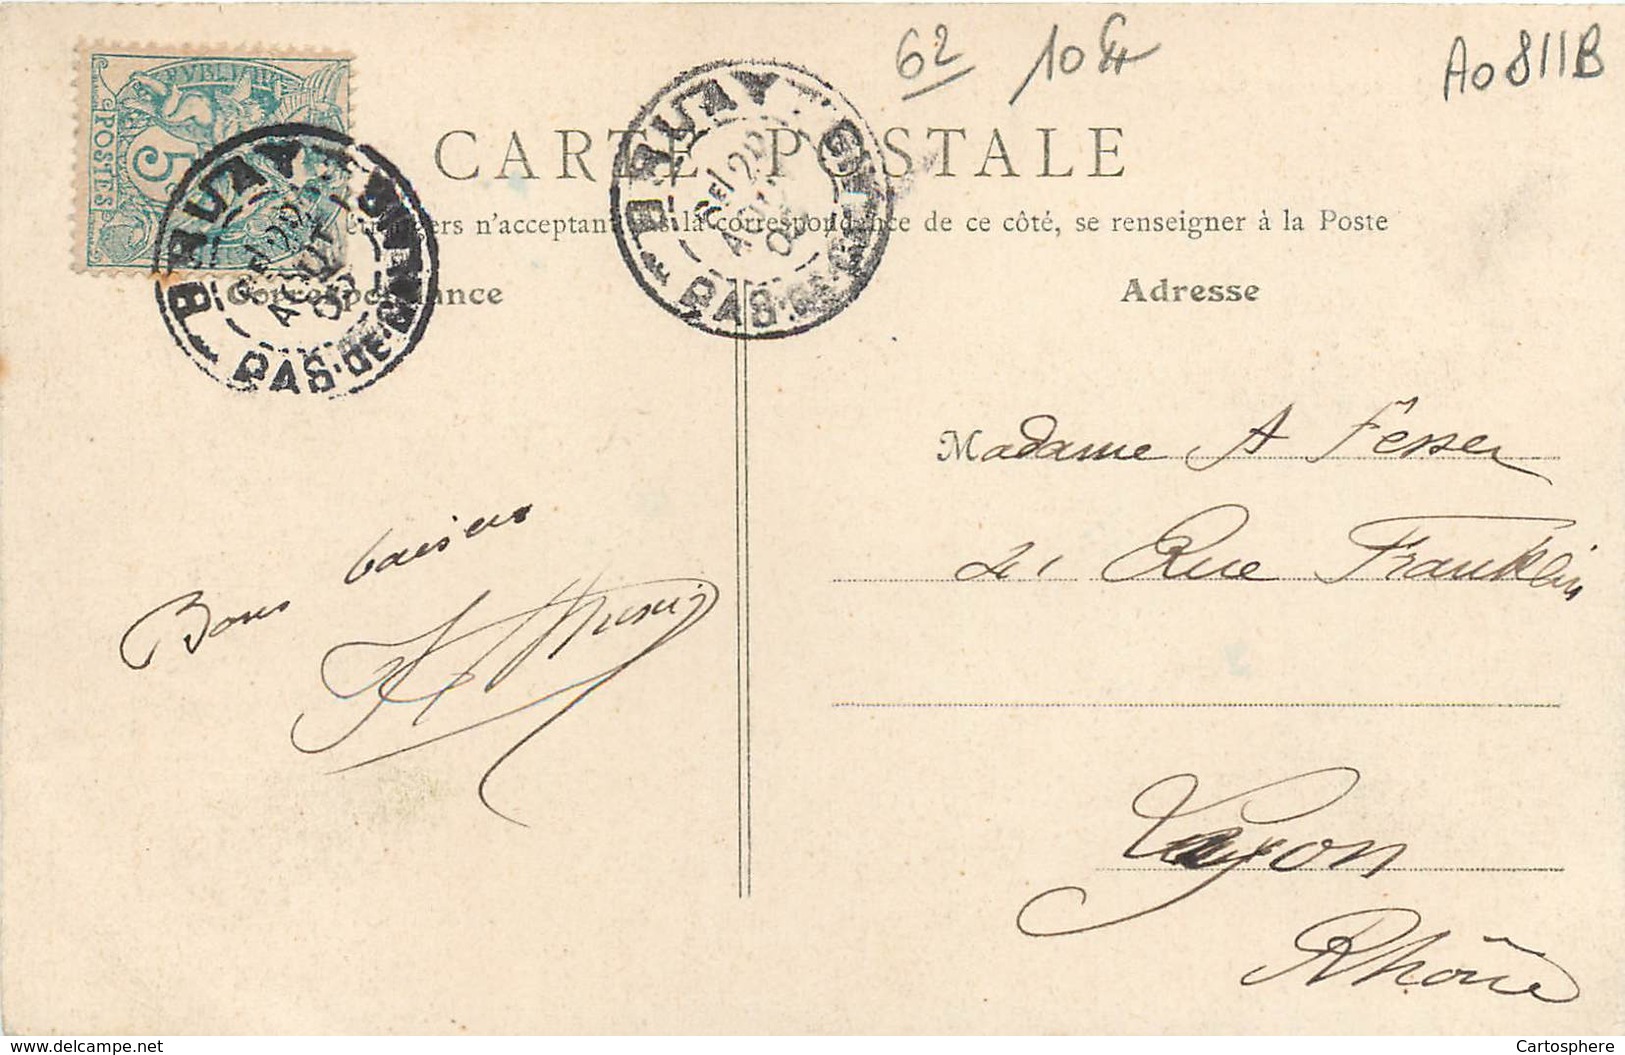 62 10 Fr A0811B
RÉPUBLIQUE
POSTES
5
CARTE POSTALE
étrangers n'acceptant pas la correspondance de ce côté, se renseigner à la Poste
BRUAY
22
AOUT
05
PAS-DE-CALAIS
BRUAY
AOUT
05
PAS-DE-CALAIS
Correspondance
Adresse
Madame A Fesser
21 Rue Franklin
Bons baisers
Lyon
Rhône
www.delcampe.net
Cartosphere